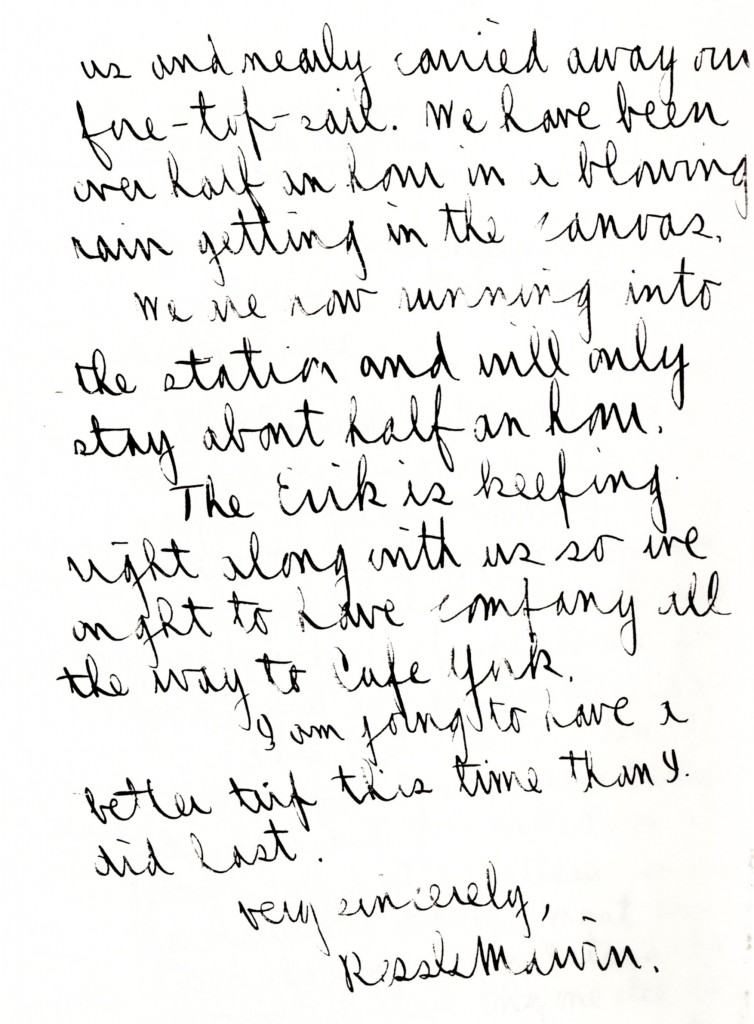 us and nearly carried away our
fore-top-sail. We have been
over half an hour in a blowing
rain getting in the canvas.
We are now running into
the station and will only
stay about half an hour.
The Erik is keeping
right along with us so we
ought to have company all
the way to Cape York.
I am going to have a
better trip this time than I
did last.
Very sincerely,
Ross Marvin.